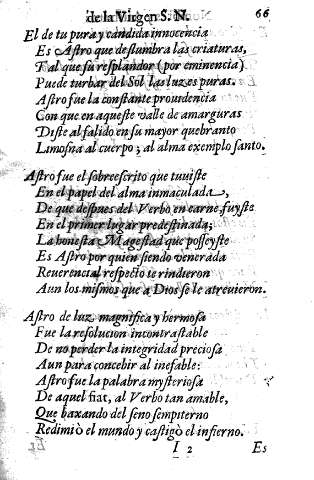 de la Virgen S. N. 66
El de tu pura y candida innocencia
Es Astro que deslumbra las criaturas,
Tal que su resplandor (por eminencia)
Puede turbar del Sol las luzes puras.
Astro fue la constante prouidencia
Con que en aqueste valle de amarguras
Diste al falido en su mayor quebranto
Limosna al cuerpo, al alma exemplo santo.
Astro fue el sobreescrito que tuuiste
En el papel del alma inmaculada,
De que despues del Verbo en carne fuyste
En el primer lugar predestinada;
La honesta Magestad que posseyste
Es Astro por quien siendo venerada
Reuerencial respecto te rindieron
Aun los mismos que a Dios se le atreuieron.
Astro de luz magnifica y hermosa
Fue la resolucion incontrastable
De no perder la integridad preciosa
Aun para concebir al inefable:
Astro fue la palabra mysteriosa
De aquel fiat, al Verbo tan amable,
Que baxando del seno sempiterno
Redimiò el mundo y castigò el infierno.
I 2 Es